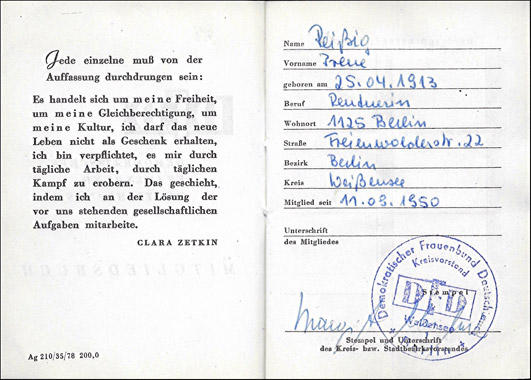 Jede einzelne muß von der
Auffassung durchdrungen sein:
Es handelt sich um meine Freiheit,
um meine Gleichberechtigung, um
meine Kultur, ich darf das neue
Leben nicht als Geschenk erhalten,
ich bin verpflichtet, es mir durch
tägliche Arbeit, durch täglichen
Kampf zu erobern. Das geschieht,
indem ich an der Lösung der
vor uns stehenden gesellschaftlichen
Aufgaben mitarbeite.
CLARA ZETKIN
Ag 210/35/78 200,0
Name Peißig
Vorname Irene
geboren am 25.04.1913
Beruf Rentnerin
Wohnort 1125 Berlin
Straße Freienwalderstr. 22
Bezirk Berlin
Kreis Weißensee
Mitglied seit 11.03.1950
Unterschrift
des Mitgliedes
Demokratischer Frauenbund Deutschlands
Kreisvorstand
Stempel
DFD
Weißensee
Stempel und Unterschrift
des Kreis- bzw. Stadtbezirksvorstandes